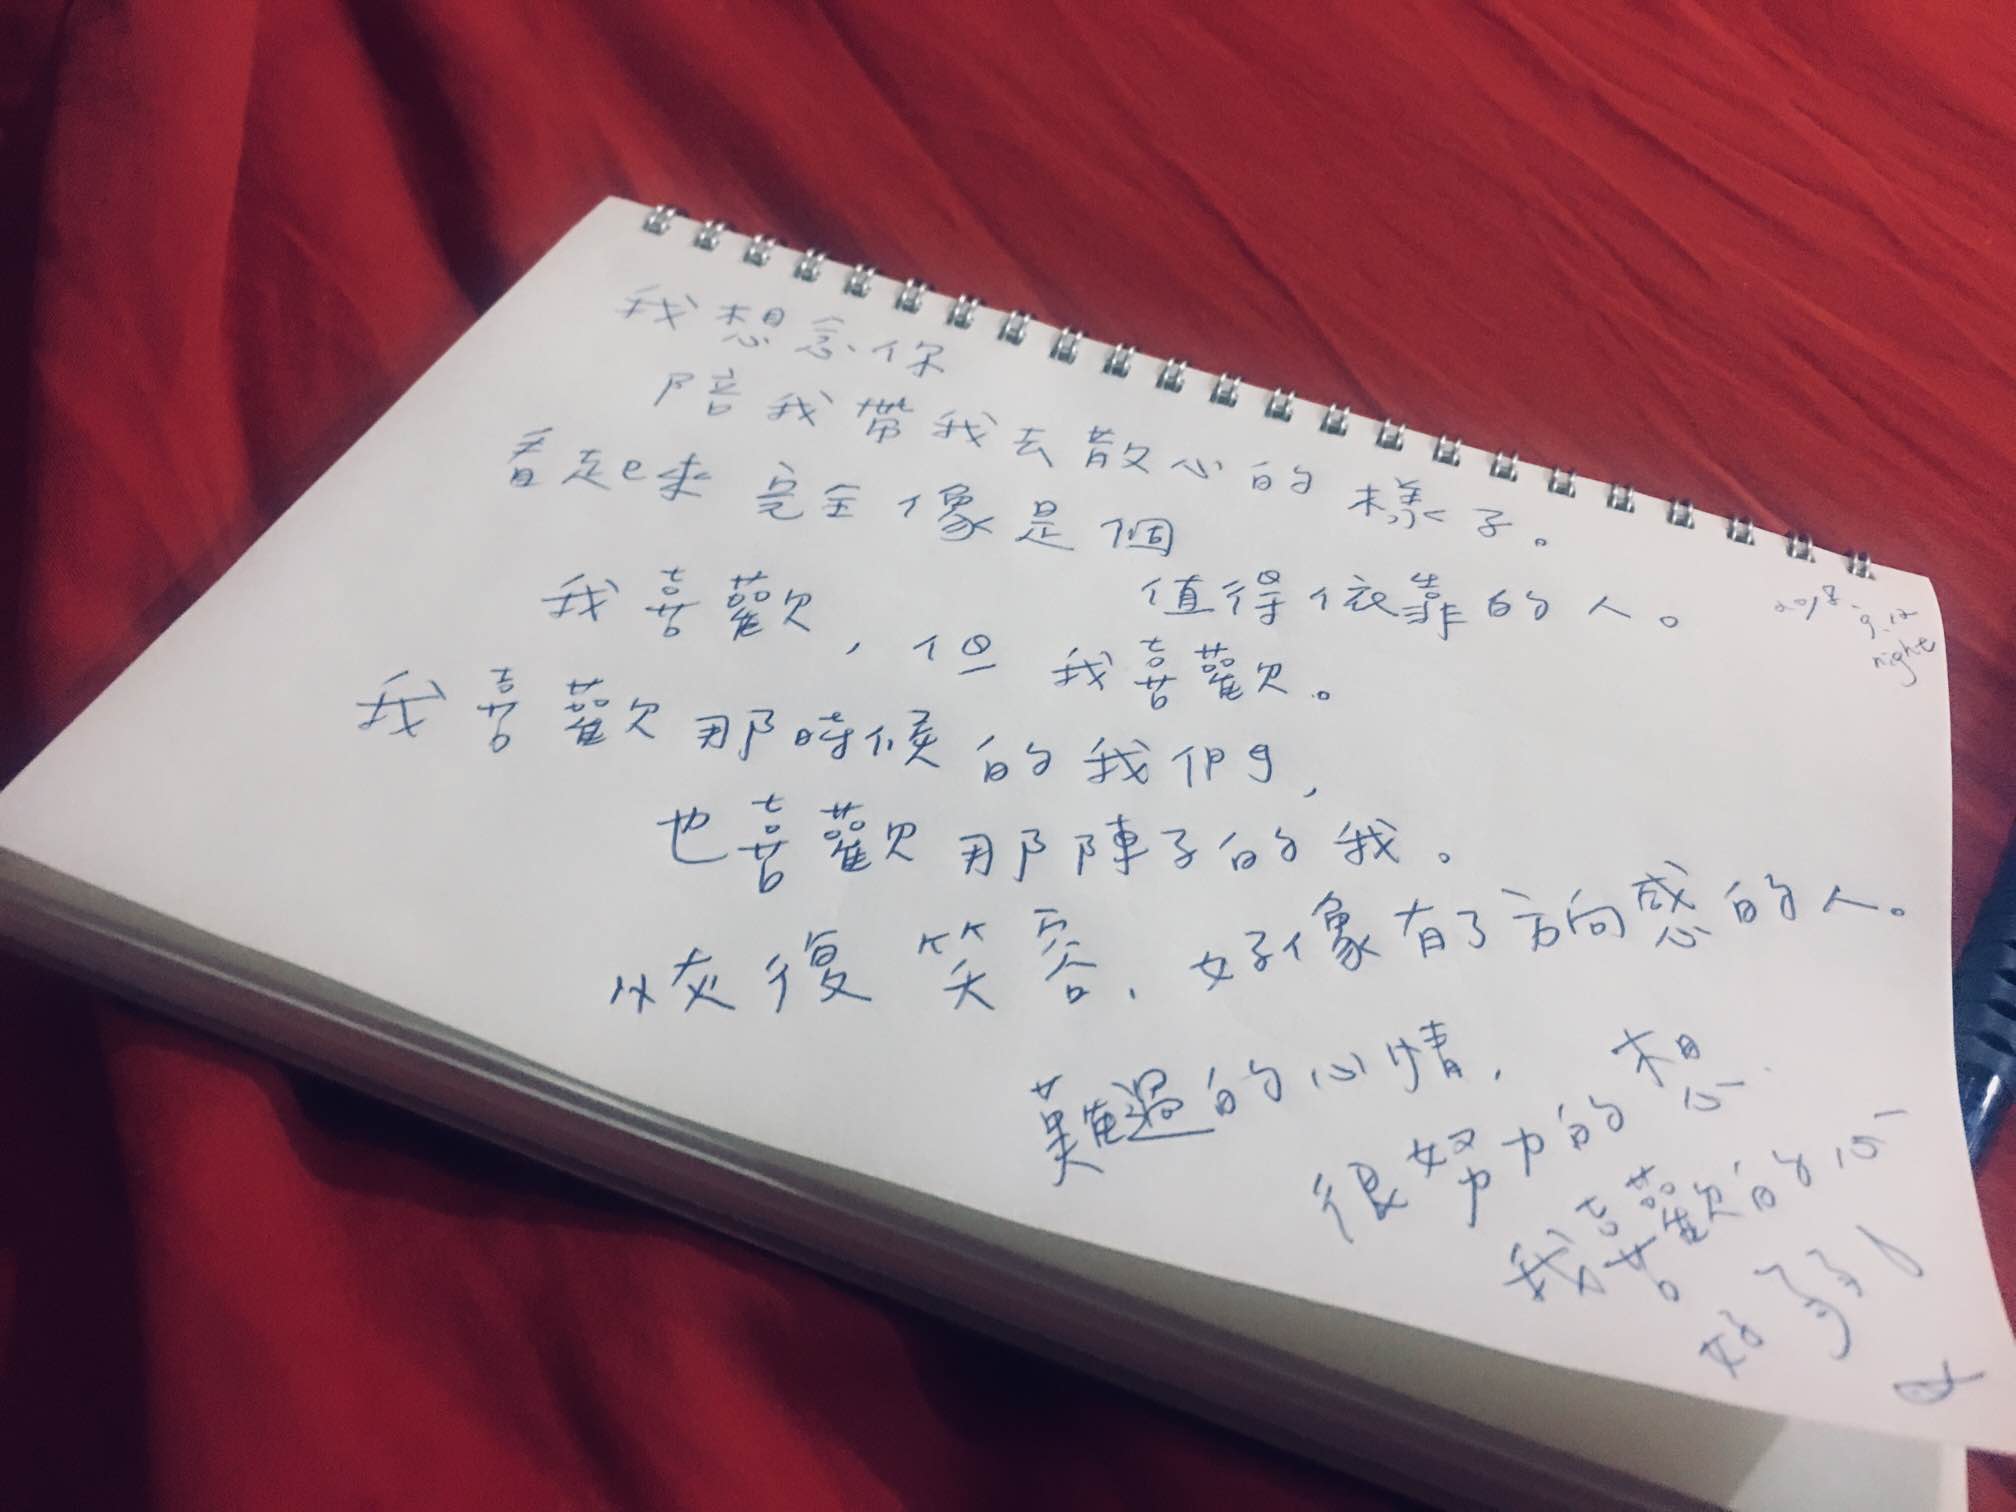 我想念你
陪我帶我去散心的樣子。
看起來完全像是個
值得依靠的人。
2018.
9.12
night
我喜歡，但我喜歡。
我喜歡那時候的我們，
也喜歡那陣子的我。
恢復笑容，好像有了方向感的人。
難過的心情，
很努力的想
我喜歡的
好